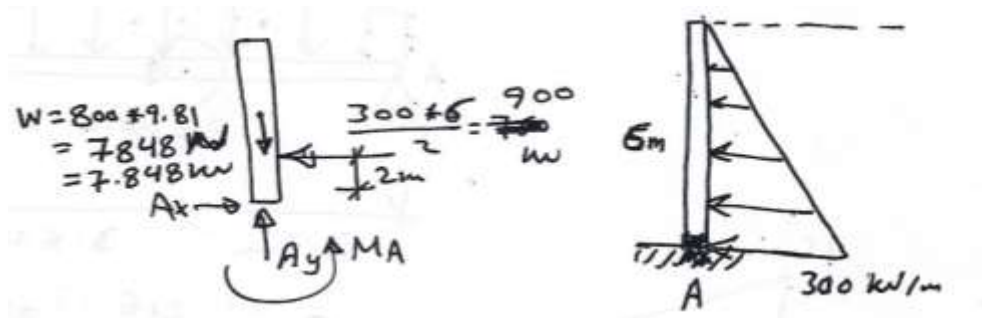 W = 800 * 9.81
= 7848 N
= 7.848 kN
300 * 6 / 2 = 900 kN
2m
Ax
Ay
MA
6m
A
300 kN/m